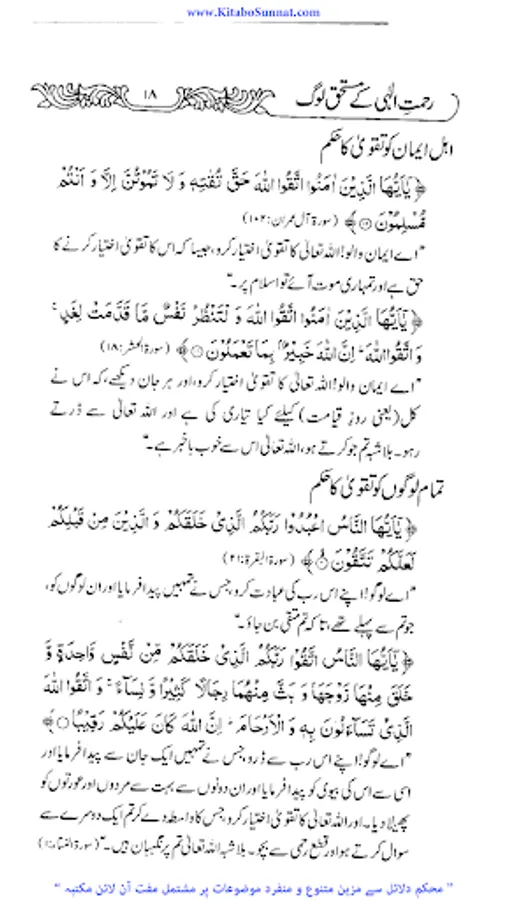 www.KitaboSunnat.com
رحمتِ الٰہی کے مستحق لوگ ۱۸
اہل ایمان کو تقویٰ کا حکم
﴿ یٰۤاَیُّهَا الَّذِیْنَ اٰمَنُوا اتَّقُوا اللّٰهَ حَقَّ تُقٰتِهٖ وَ لَا تَمُوْتُنَّ اِلَّا وَ اَنْتُمْ
مُّسْلِمُوْنَ ﴾ (سورۃ آل عمران: ۱۰۲)
”اے ایمان والو! اللہ تعالیٰ کا تقویٰ اختیار کرو، جیسا کہ اس کا تقویٰ اختیار کرنے کا
حق ہے اور تمہاری موت آئے تو اسلام پر۔“
﴿ یٰۤاَیُّهَا الَّذِیْنَ اٰمَنُوا اتَّقُوا اللّٰهَ وَ لْتَنْظُرْ نَفْسٌ مَّا قَدَّمَتْ لِغَدٍ ۚ
وَ اتَّقُوا اللّٰهَ ؕ اِنَّ اللّٰهَ خَبِیْرٌۢ بِمَا تَعْمَلُوْنَ ﴾ (سورۃ الحشر: ۱۸)
”اے ایمان والو! اللہ تعالیٰ کا تقویٰ اختیار کرو، اور ہر جان دیکھے، کہ اس نے
کل (یعنی روزِ قیامت) کیلئے کیا تیاری کی ہے اور اللہ تعالیٰ سے ڈرتے
رہو۔ بلاشبہ تم جو کرتے ہو، اللہ تعالیٰ اس سے خوب باخبر ہے۔“
تمام لوگوں کو تقویٰ کا حکم
﴿ یٰۤاَیُّهَا النَّاسُ اعْبُدُوْا رَبَّكُمُ الَّذِیْ خَلَقَكُمْ وَ الَّذِیْنَ مِنْ قَبْلِكُمْ
لَعَلَّكُمْ تَتَّقُوْنَ ﴾ (سورۃ البقرۃ: ۲۱)
”اے لوگو! اپنے اس رب کی عبادت کرو، جس نے تمہیں پیدا فرمایا اور ان لوگوں کو،
جو تم سے پہلے تھے، تاکہ تم متقی بن جاؤ۔“
﴿ یٰۤاَیُّهَا النَّاسُ اتَّقُوْا رَبَّكُمُ الَّذِیْ خَلَقَكُمْ مِّنْ نَّفْسٍ وَّاحِدَةٍ وَّ
خَلَقَ مِنْهَا زَوْجَهَا وَ بَثَّ مِنْهُمَا رِجَالًا كَثِیْرًا وَّ نِسَآءً ۚ وَ اتَّقُوا اللّٰهَ
الَّذِیْ تَسَآءَلُوْنَ بِهٖ وَ الْاَرْحَامَ ؕ اِنَّ اللّٰهَ كَانَ عَلَیْكُمْ رَقِیْبًا ﴾
”اے لوگو! اپنے اس رب سے ڈرو، جس نے تمہیں ایک جان سے پیدا فرمایا اور
اسی سے اس کی بیوی کو پیدا فرمایا اور ان دونوں سے بہت سے مردوں اور عورتوں کو
پھیلا دیا۔ اور اللہ تعالیٰ کا تقویٰ اختیار کرو، جس کا واسطہ دے کر تم ایک دوسرے سے
سوال کرتے ہو اور قطع رحمی سے بچو۔ بلاشبہ اللہ تعالیٰ تم پر نگہبان ہیں۔“ (سورۃ النساء: ۱)
” محکم دلائل سے مزین متنوع و منفرد موضوعات پر مشتمل مفت آن لائن مکتبہ “